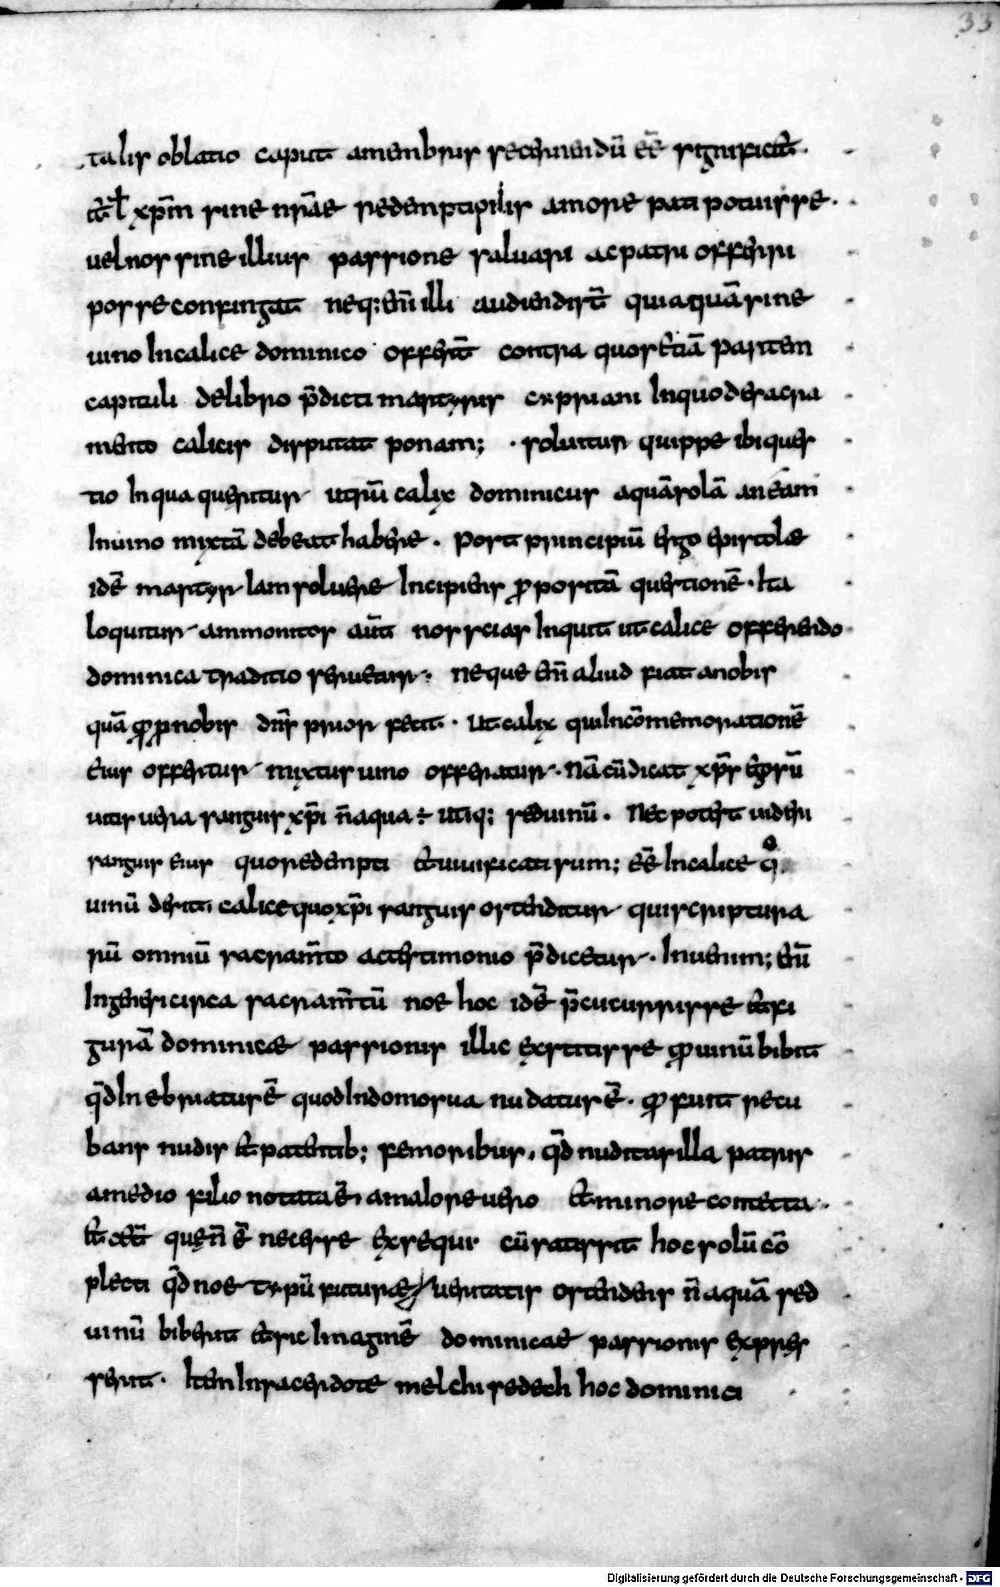 33
talis oblatio caput amembris secernendū eē significat.
&ł xp̄m sine nr̄ae redemptiõis amore pati potuisse.
uel nos sine illius passione saluari ac patri offerri
posse confingat neq; eñ illi audiendi st̄ qui aquā sine
uino in calice dominico offert̄ contra quos etiā partem
capituli de libro p̄dicti martyris cypriani in quo de sacra
mento calicis disputat ponam; soluitur quippe ibi ques
tio in qua queritur utrū calix dominicus aquā solā an eam
in uino mixtā debeat habere. Post principiū ergo epistolae
idē martyr iam soluere incipiens ꝓpositā questionē. Ita
loquitur ammonitos aūt nos scias inquit ut calice offerendo
dominica traditio seruetur. neque eñ aliud fiat a nobis
quā ꝙ p nobis dn̄s prior fecit. ut calix qui in cōmemorationē
eius offertur mixtus uino offeratur. Nā cū dicat xp̄s ego sū
uitis uera sanguis xp̄i ñ aqua ÷ utiq; sed uinū. Nec potest uideri
sanguis eius quo redempti & uiuificati sum; eē in calice qo
uinū desit calice quo xp̄i sanguis ostenditur qui scriptura
rū omniū sacram̄to ac testimonio p̄dicetur. Inuenim; eñ
in genesi circa sacram̄tū noe hoc idē p̄cucurrisse & fi
gurā dominicae passionis illic extitisse ꝙ uinū bibit
qd̄ inebriatus ē quod in domo sua nudatus ē. ꝙ fuit recu
bans nudis & patentib; femoribus, qd̄ nuditas illa patris
a medio filio notata ē, a maiore uero & minore contecta.
& cet̄ que ñ ē necesse exsequi cū satis sit hoc solū cō
plecti qd̄ noe typū futurae ueritatis ostendens ñ aquā sed
uinū biberit & sic imaginē dominicae passionis expres
serit. Item in sacerdote melchisedech hoc dominici
Digitalisierung gefördert durch die Deutsche Forschungsgemeinschaft - DFG